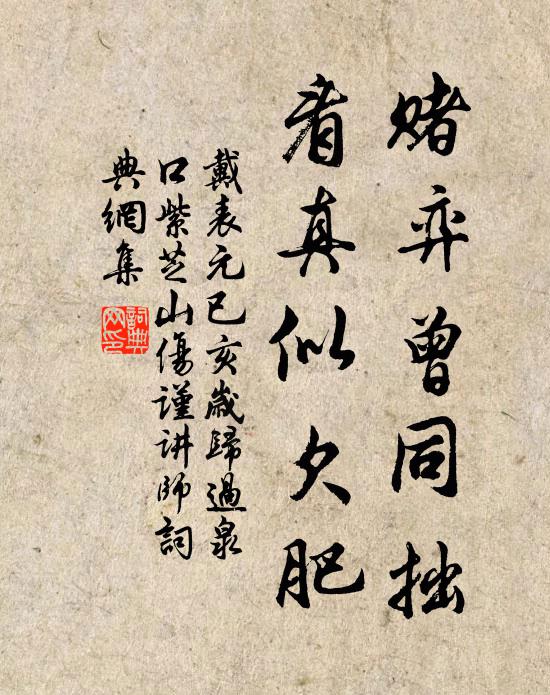 赌弈曾同拙
看真似欠肥
戴表元己亥歲歸過泉
口紫芝山傷謹讲師詞
典網集
詞典
网印